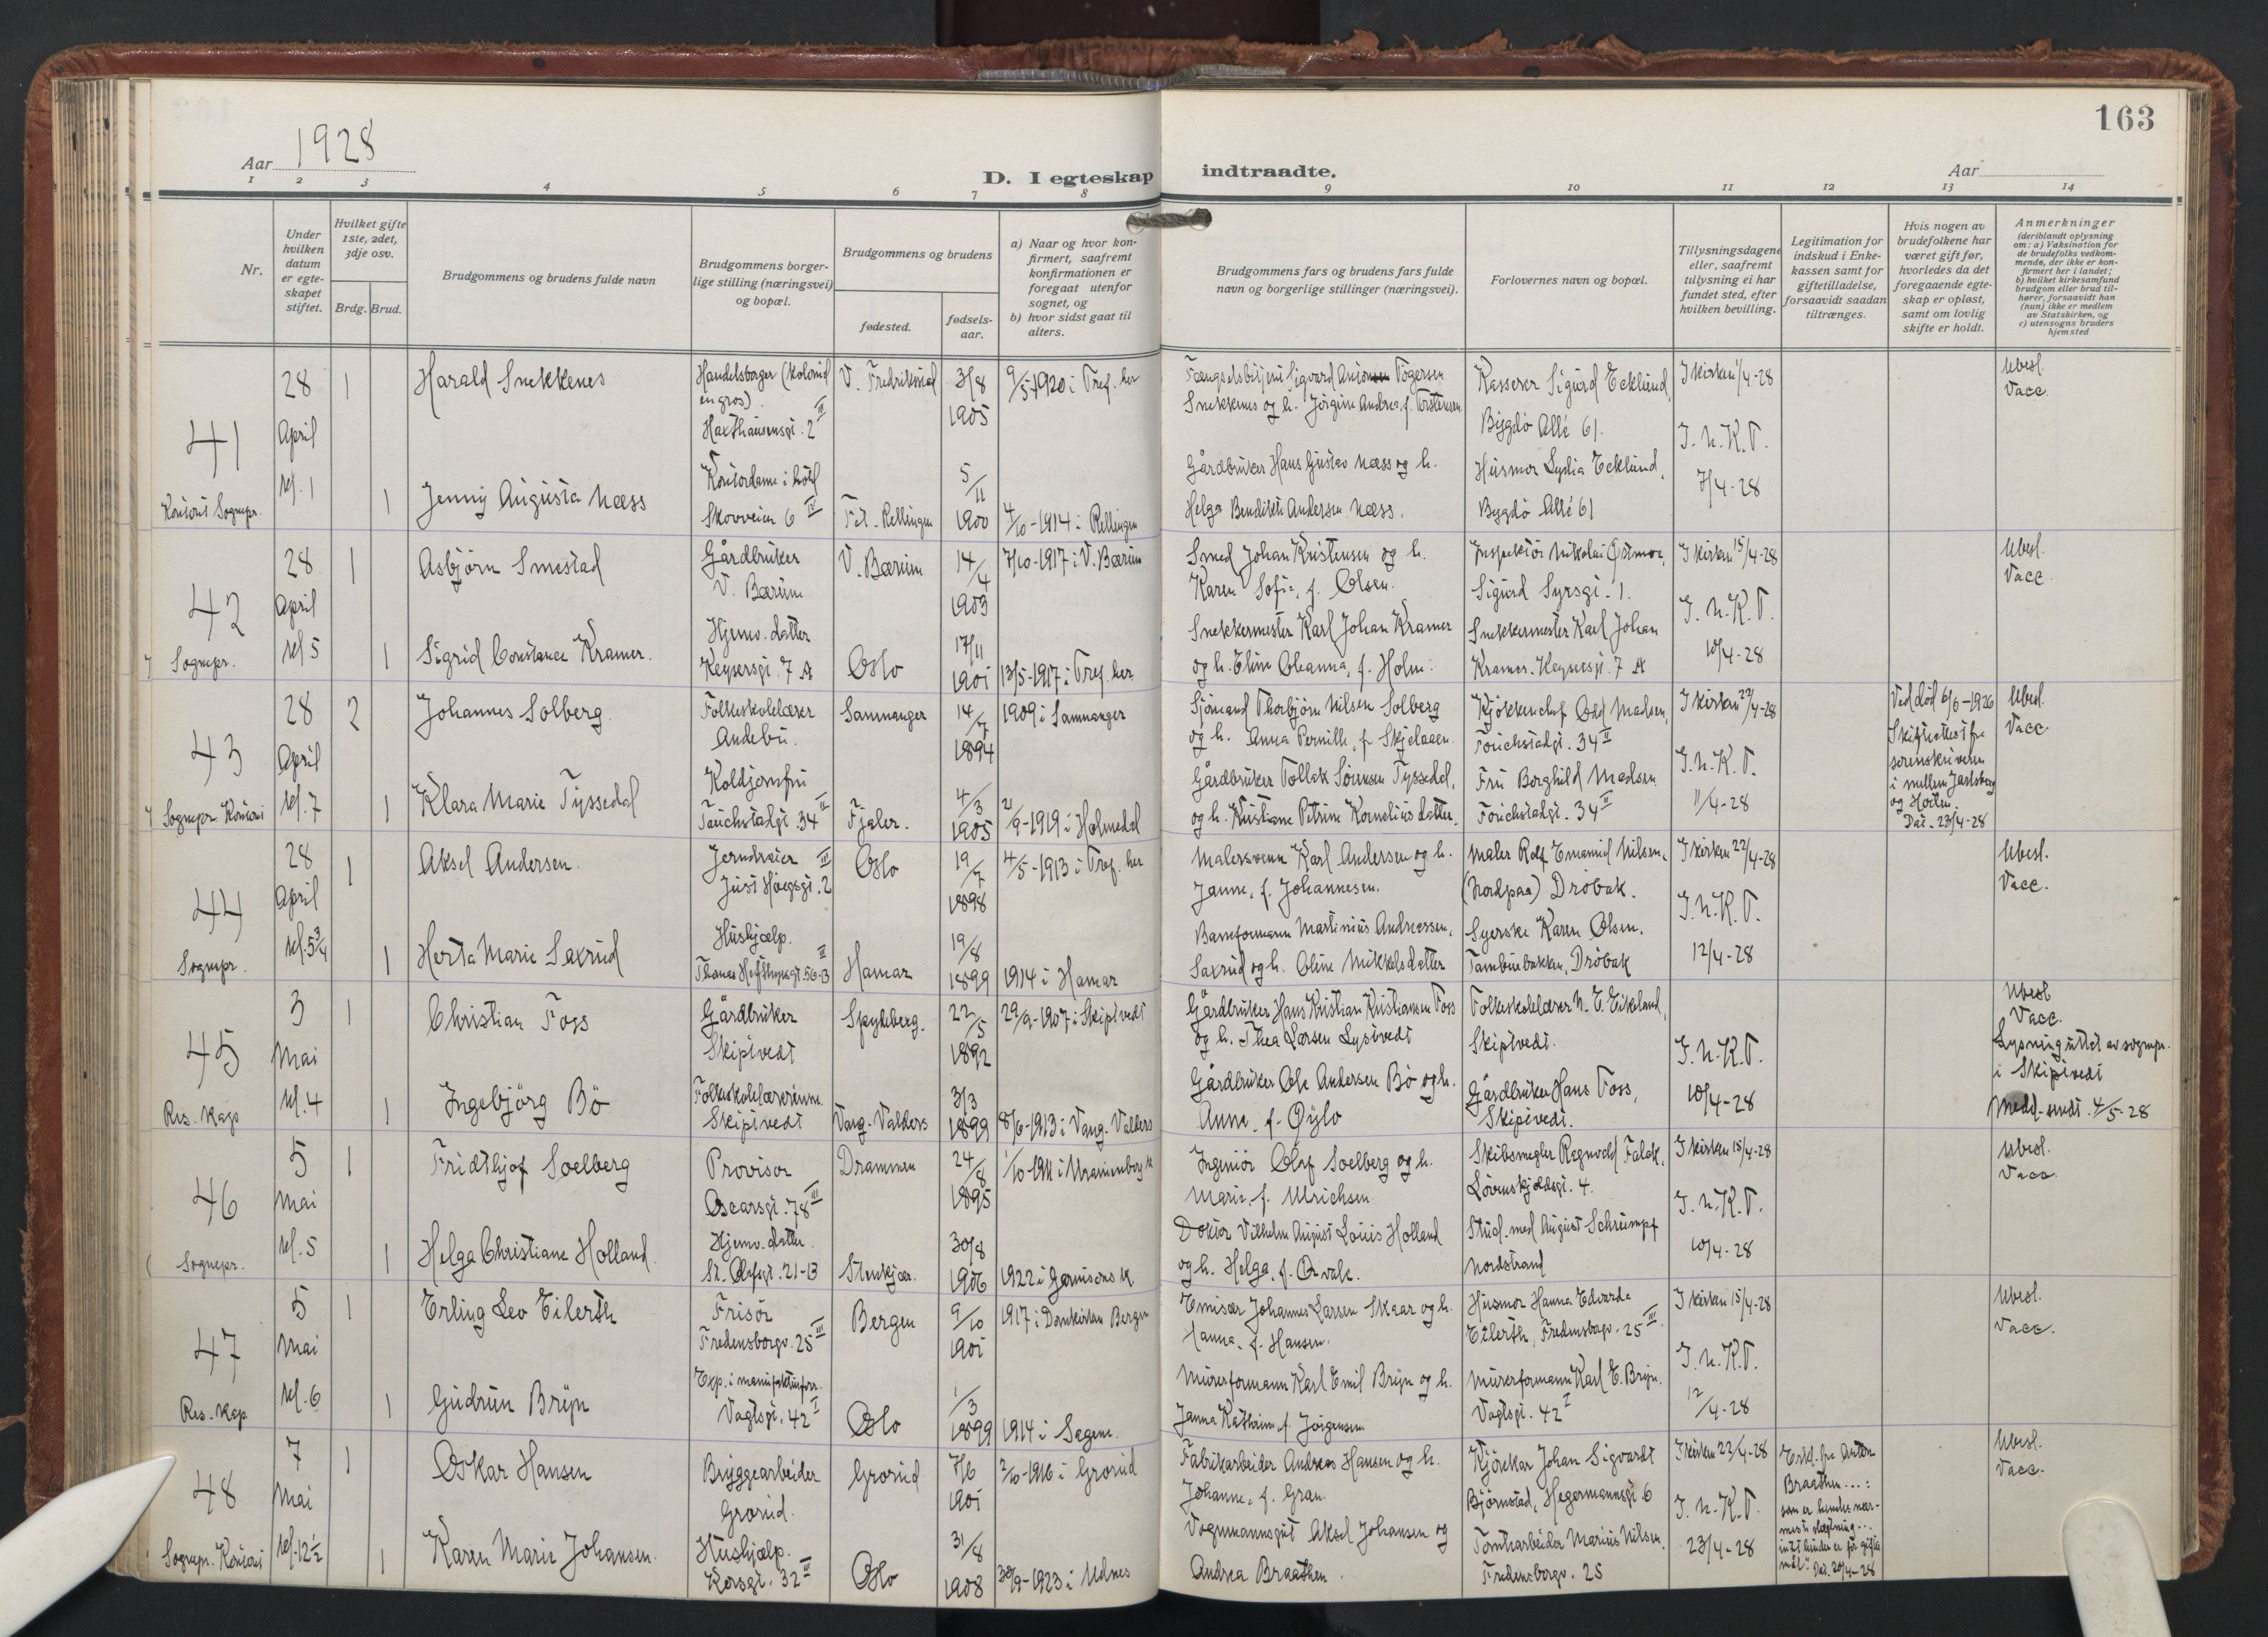 163
Aar 1928
D. I egteskap indtraadte.
Aar
1 2 3 4 5 6 7 8 9 10 11 12 13 14
Nr.
Under hvilken datum er egteskapet stiftet.
Hvilket gifte 1ste, 2det, 3dje osv.
Brdg. Brud.
Brudgommens og brudens fulde navn
Brudgommens borgerlige stilling (næringsvei) og bopæl.
Brudgommens og brudens
fødested.
fødselsaar.
a) Naar og hvor konfirmert, saafremt konfirmationen er foregaat utenfor sognet, og
b) hvor sidst gaat til alters.
Brudgommens fars og brudens fars fulde navn og borgerlige stillinger (næringsvei).
Forlovernes navn og bopæl.
Tillysningsdagene eller, saafremt tillysning ei har fundet sted, efter hvilken bevilling.
Legitimation for indskud i Enkekassen samt for giftetilladelse, forsaavidt saadan tiltrænges.
Hvis nogen av brudefolkene har været gift før, hvorledes da det foregaaende egteskap er opløst, samt om lovlig skifte er holdt.
Anmerkninger
(deriblandt oplysning om: a) Vaksination for de brudefolks vedkommende, der ikke er konfirmert her i landet; b) hvilket kirkesamfund brudgom eller brud tilhører, forsaavidt han (hun) ikke er medlem av Statskirken, og c) utensogns bruders hjemsted
41
28 April kl. 1
Kontoret Sognepr.
1
Harald Snekkenes
Handelsborger (kolonial en gros).
Haxthausensgt. 2 III
V. Fredrikstad
3/8 1905
9/5-1920 i Tref. her
Fængselsbetjent Sigvard Antonsen Togersen
Snekkenes og h. Jørgine Andrea, f. Torstensen
Kasserer Sigurd Ecklund,
Bygdø Allé 61.
I kirken 1/4-28
I.N.K.T.
7/4-28
Ubesl.
Vacc.
1
Jenny Augusta Næss
Kontordame i hotel
Skovveien 6 IV
Fet-Rellingen
5/11 1900
4/10-1914 i Rellingen
Gårdbruker Hans Gustav Næss og h.
Helga Bendikte Andersen Næss.
Husmor Lydia Ecklund,
Bygdø Allé 61
42
28 April kl 5
Sognepr.
1
Asbjørn Smestad
Gårdbruker
V. Bærum
V. Bærum
14/4 1903
7/10-1917 i V. Bærum
Smed Johan Kristensen og h.
Karen Sofie, f. Olsen.
Inspektør Nikolai Østmoe,
Sigurd Syrsgt. 1.
I kirken 15/4-28
I.N.K.T.
10/4-28
Ubesl.
Vacc.
1
Sigrid Constance Kramer.
Hjemv. datter
Keysersgt. 7 A
Oslo
17/11 1901
13/5-1917 i Tref. her.
Snekkermester Karl Johan Kramer
og h. Eline Oleanna, f. Holm.
Snekkermester Karl Johan
Kramer. Keysersgt. 7 A
43
28 April kl. 7
Sognepr. Kontoret
2
Johannes Solberg.
Folkeskolelærer
Andebu.
Samnanger
14/7 1894
1909 i Samnanger
Sjømand Thorbjørn Nilsen Solberg
og h. Anna Pernille, f. Skjelaaen.
Kjøkkenchef Odd Madsen,
Tourichstadgt. 34 II
I kirken 22/4-28
I.N.K.T.
11/4-28
Ved død 6/6-1926
Skifteattest fra
sorenskriveren
i mellem Jarlsberg
og Horten.
Dat. 23/4-28
Ubesl.
Vacc.
1
Klara Marie Tyssedal
Koldjomfru
Fjaler.
4/3 1905
21/9-1919 i Holmedal
Gårdbruker Tollek Sørensen Tyssedal,
og h. Kristiane Petrine Korneliusdatter.
Fru Borghild Madsen
44
28 April kl. 5 3/4
Sognepr.
1
Aksel Andersen.
Jerndreier
Just Høegsgt. 2 III
Oslo
19/7 1898
4/5-1913 i Tref. her
Malersvenn Karl Andersen og h.
Janne, f. Johannesen.
Maler Rolf Emanuel Nilsen,
(Nordpaa) Drøbak.
I kirken 22/4-28
I.N.K.T.
12/4-28
Ubesl.
Vacc.
1
Herta Marie Saxrud
Hushjælp.
Thomas Hefthyesgt. 56 B II
Hamar
19/8 1899
1914 i Hamar
Baneformann Martinius Andreassen,
Saxrud og h. Oline Mikkelsdatter
Syerske Karen Olsen.
Tamburbakken, Drøbak
45
3 Mai kl. 4
Res. Kap
1
Christian Foss
Gårdbruker
Skiptvedt
Spydeberg.
22/5 1892
29/9-1907 i Skiptvedt
Gårdbruker Hans Kristian Kristiansen Foss
og h. Thea Larsen Lystvedt
Folkeskolelærer N. E. Eikeland,
Skiptvedt.
I.N.K.T.
10/4-28
Ubesl
Vacc.
Lysning uttat av sognepr.
i Skiptvedt
Medd. sendt. 4/5-28
1
Ingebjørg Bø
Folkeskolelærerinne.
Skiptvedt
Vang. Valders
3/3 1899
8/6-1913 i Vang. Valders
Gårdbruker Ole Andersen Bø og h.
Anne, f. Øylo
Gårdbruker Hans Foss,
Skiptvedt.
46
5 Mai kl. 5
Sognepr.
1
Fridthjof Soelberg
Provisor
Oscarsgt. 78 III
Drammen
24/8 1895
1/10-1911 i Uranienborg k
Ingeniør Olaf Soelberg og h.
Marie, f. Ulrichsen.
Skibsmegler Regnvald Falck,
Løvenskjoldsgt. 4.
I kirken 15/4-28
I.N.K.T.
10/4-28
Ubesl.
Vacc.
1
Helga Christiane Holland.
Hjemv. datter.
St. Olafsgt. 21-B
Stenkjær.
30/8 1906
1922 i Garnisons k.
Doktor Vilhelm August Louis Holland
og h. Helga, f. Qvale.
Stud. med August Schrumpf
Nordstrand
47
5 Mai kl. 6
Res. Kap
1
Erling Leo Eilerth
Frisør
Fredensborgv. 25 III
Bergen
9/10 1901
1917 i Domkirken Bergen
Emisær Johannes Larsen Skaar og h.
Hanna, f. Hansen.
Husmor Hanna Edvarda
Eilerth, Fredensborgv. 25 III
I kirken 15/4-28
I.N.K.T.
12/4-28
Ubesl.
Vacc.
1
Gudrun Bryn
Exp. i manufakturforr.
Vogtsgt. 42 I
Oslo
1/3 1899
1914 i Sagene.
Murerformann Karl Emil Bryn og h.
Janna Kathrine f. Jørgensen
Murerformann Karl E. Bryn.
Vogtsgt. 42 I
48
7 Mai kl. 12 1/2
Sognepr. Kontoret
1
Oskar Hansen
Bryggearbeider
Grorud.
Grorud
7/6 1901
2/10-1916 i Grorud
Fabrikarbeider Andreas Hansen og h.
Johanne, f. Gran.
Kjørekar Johan Sigvardt
Bjørnstad, Hegermannsgt. 6
I kirken 23/4-28
I.N.K.T.
23/4-28
Erkl. fra Anton
Braathen...:
som er hendes nær-
meste slægtning...
intet hinder er for gifte
mål." Dat. 20/4-28
Ubesl.
Vacc.
1
Karen Marie Johansen.
Hushjælp.
Korsgt. 32 III
Oslo
31/8 1908
30/9-1923 i Udnes
Vognmannsgut Aksel Johansen og
Andrea Braathen.
Tomtearbeider Marius Nilsen.
Fredensborgv. 25